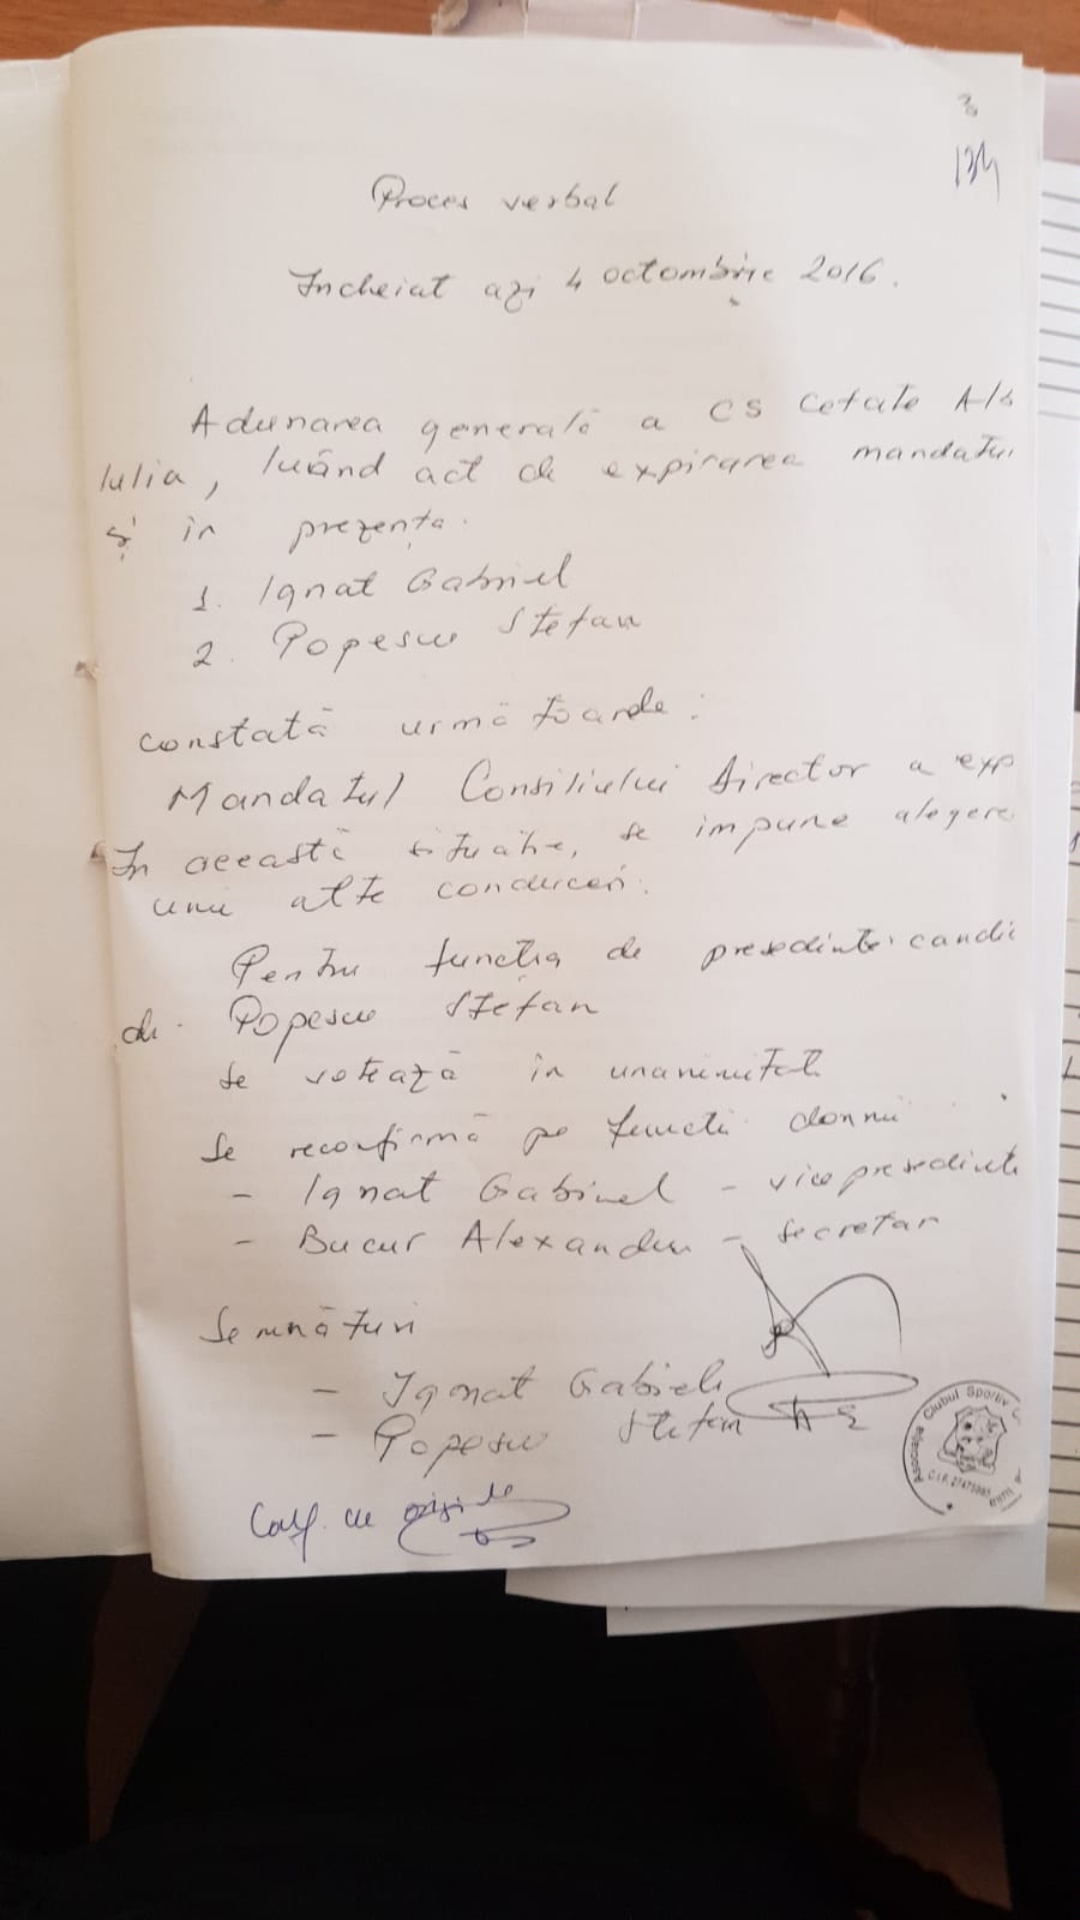 134
Proces verbal
Incheiat azi 4 octombrie 2016.
Adunarea generală a CS Cetate Alb
Iulia, luând act de expirarea mandatul
și în prezența.
1. Ignat Gabriel
2. Popescu Stefan
constată următoarele:
Mandatul Consiliului Director a exp
In această situatie, se impune alegere
unei alte conduceri.
Pentru functia de presedinte candi
de Popescu Ștefan
Se votează în unanimitate
Se reconfirmă pe functii domnii
- Ignat Gabriel - vicepresedinte
- Bucur Alexandru - secretar
Semnături
- Ignat Gabriel
- Popescu Stefan
Conf. cu originalul
Asociația Clubul Sportiv
C.I.F.